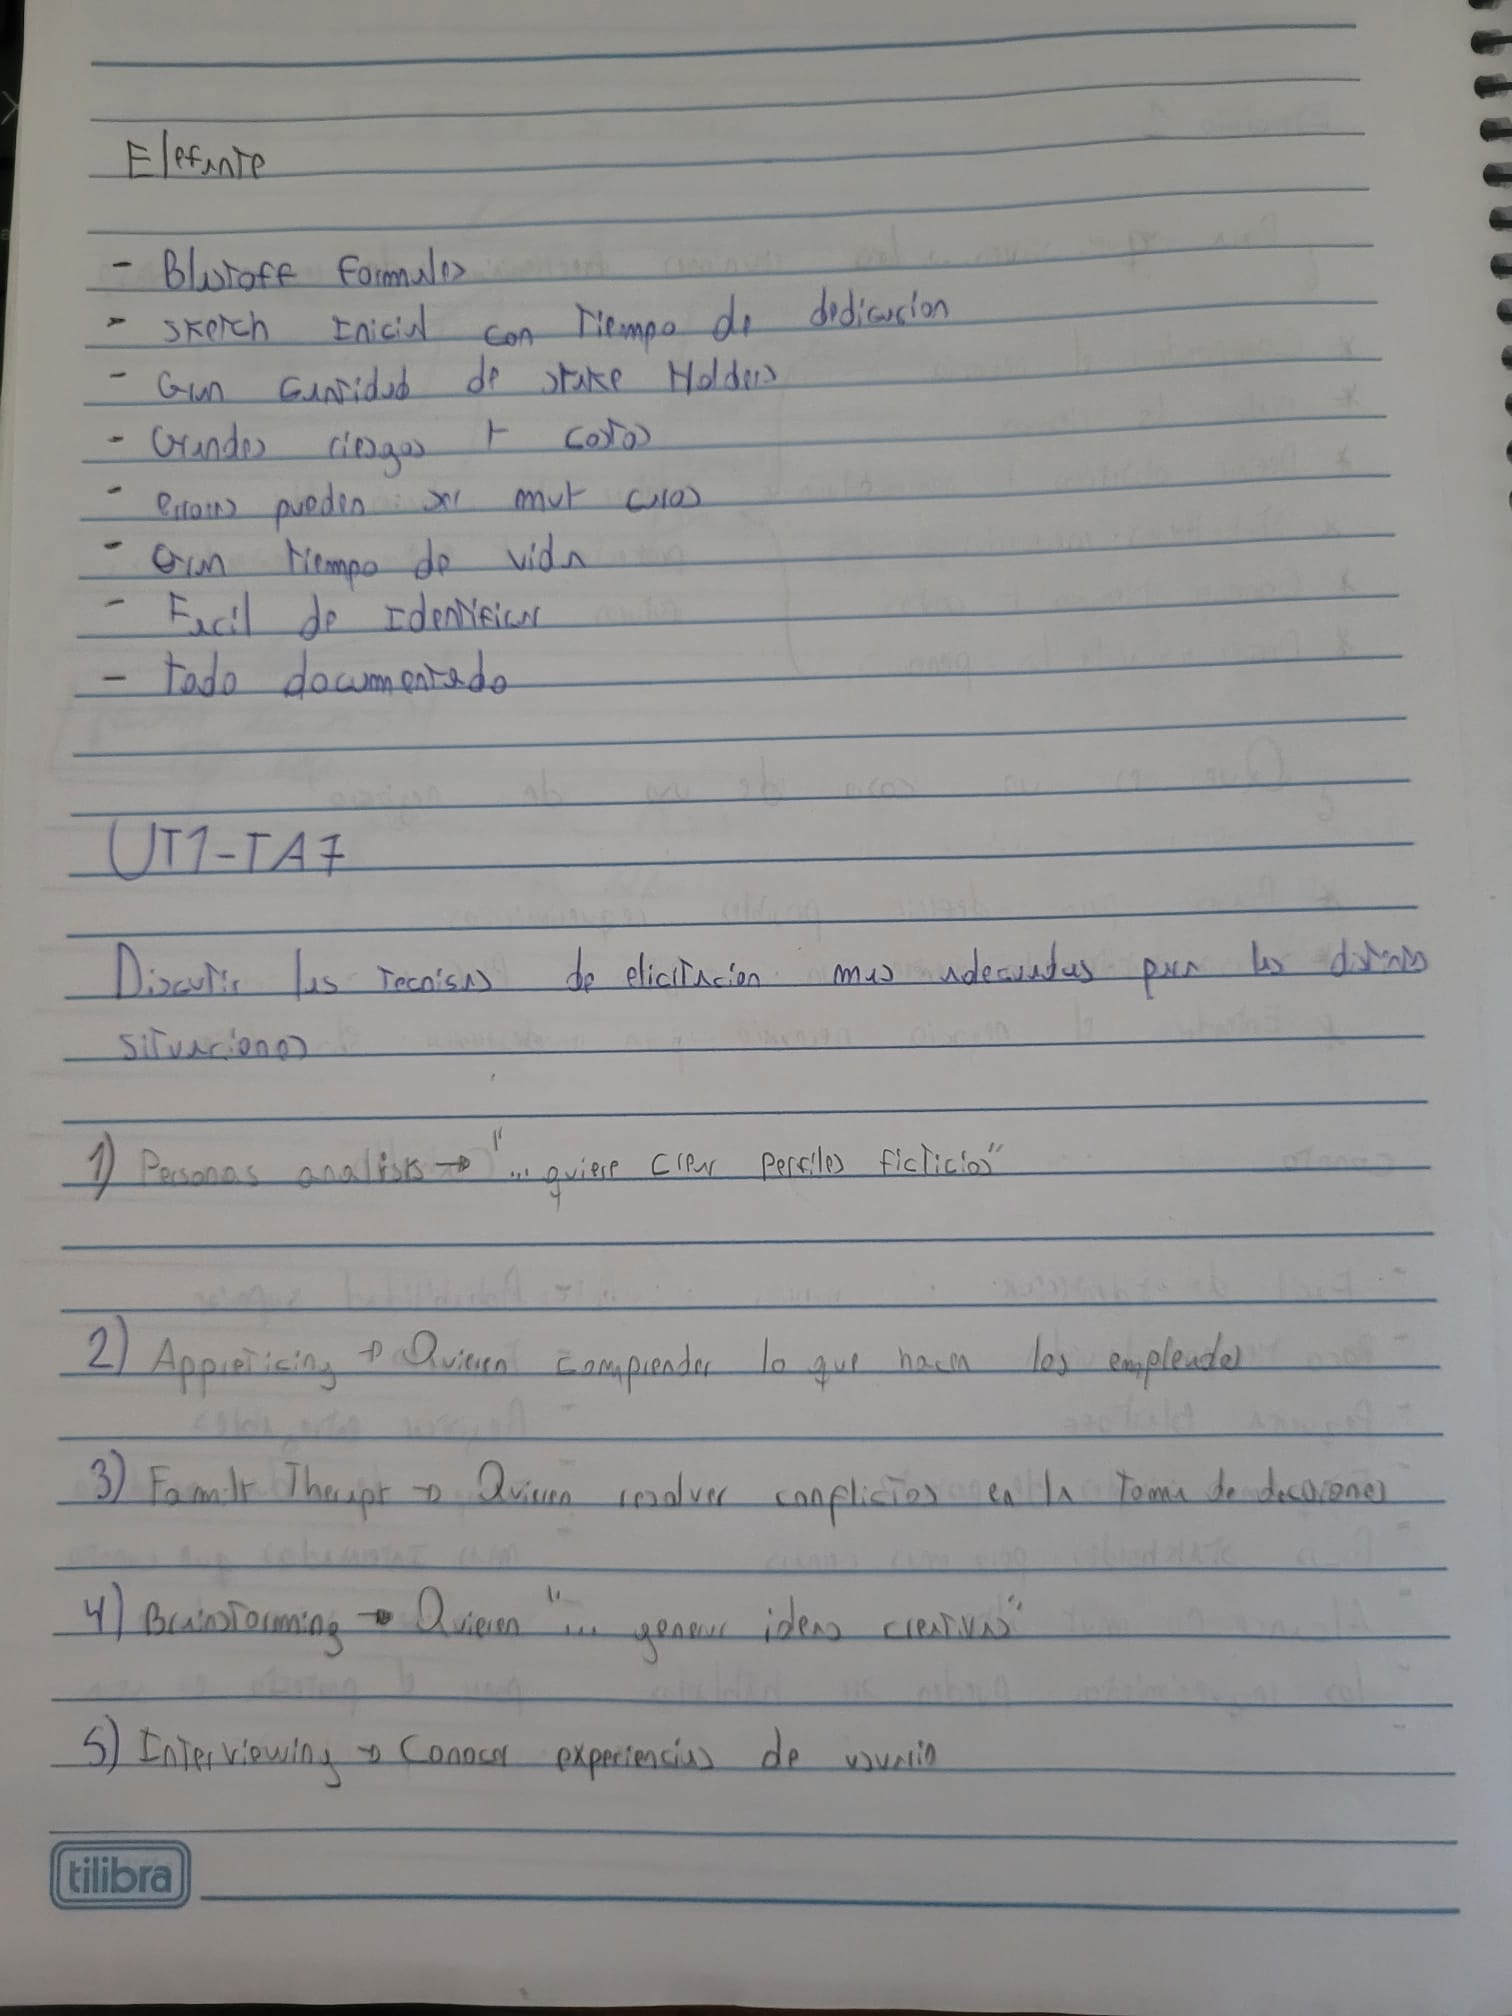 Elefante
- Blastoff Formales
- Sketch Inicial con Tiempo de dedicacion
- Gran Cantidad de stake Holders
- Grandes riesgos y costos
- errores pueden ser muy caros
- Gran tiempo de vida
- Facil de Identificar
- todo documentado
UT1-TA7
Discutir las tecnicas de elicitacion mas adecuadas para las distintas
situaciones
1) Personas analisis → "... quiere crear perfiles ficticios"
2) Appreticing → Quieren comprender lo que hacen los empleados
3) Family Therapy → Quieren resolver conflictos en la toma de decisiones
4) Brainstorming → Quieren "... generar ideas creativas"
5) Interviewing → Conocer experiencias de usuario
tilibra